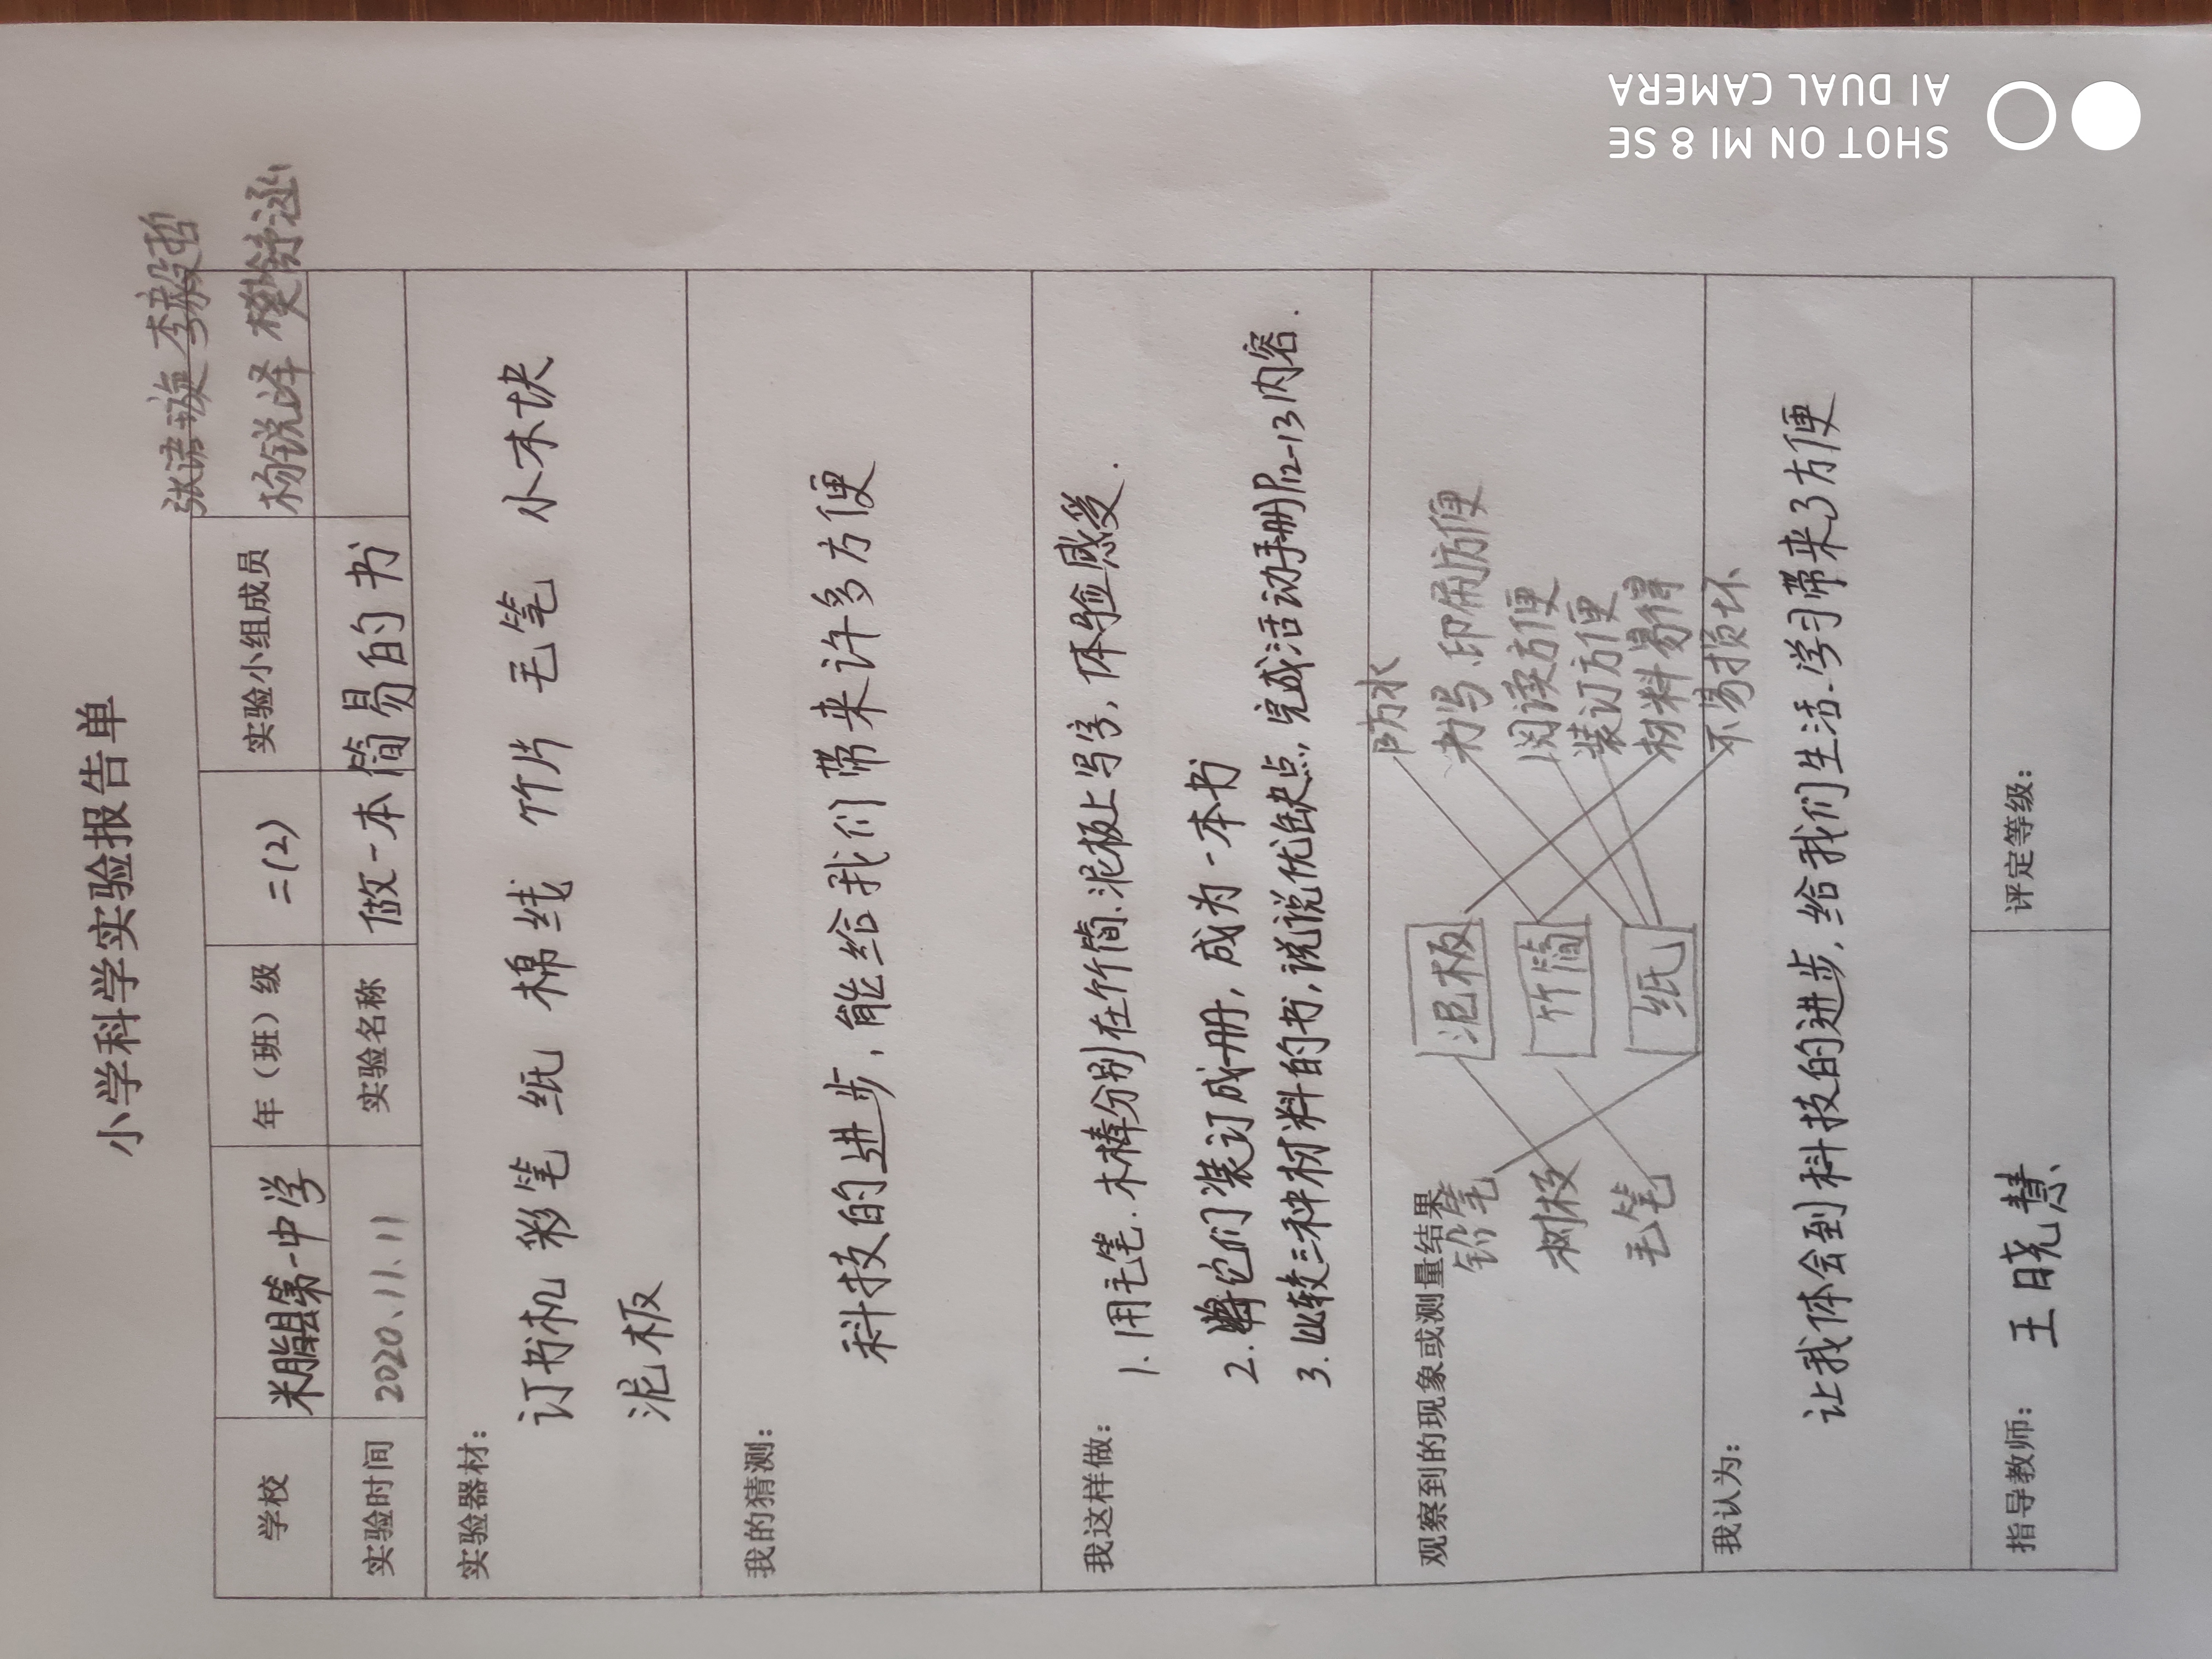 小学科学实验报告单
张语璇 李毅哲
学校 米脂县第一中学 年（班）级 二(2) 实验小组成员 杨锐泽 樊舒涵
实验时间 2020、11、11 实验名称 做一本简易的书
实验器材：
订书机 彩笔 纸 棉线 竹片 毛笔 小木块
泥板
我的猜测：
科技的进步，能给我们带来许多方便
我这样做：
1.用毛笔.木棒分别在竹简.泥板上写字，体验感受.
2.将它们装订成册，成为一本书
3.比较三种材料的书，说说优缺点，完成活动手册P12-13内容.
观察到的现象或测量结果
防水
铅笔 泥板 书写.印刷方便
树枝 竹简 阅读方便
装订方便
毛笔 纸 材料易得
不易损坏
我认为：
让我体会到科技的进步，给我们生活.学习带来了方便
指导教师： 王晓慧 评定等级：
SHOT ON MI 8 SE
AI DUAL CAMERA